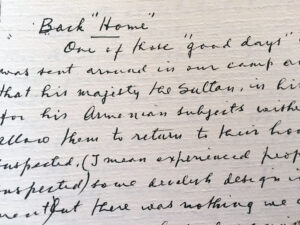 " Back "Home"
One of those "good days"
was sent around in our camp or
that his majesty the Sultan, in his
for his Armenian subjects wishe
allow them to return to their hom
inspected, (I mean experienced peop
inspected) some devilish design i
ment) but there was nothing we c